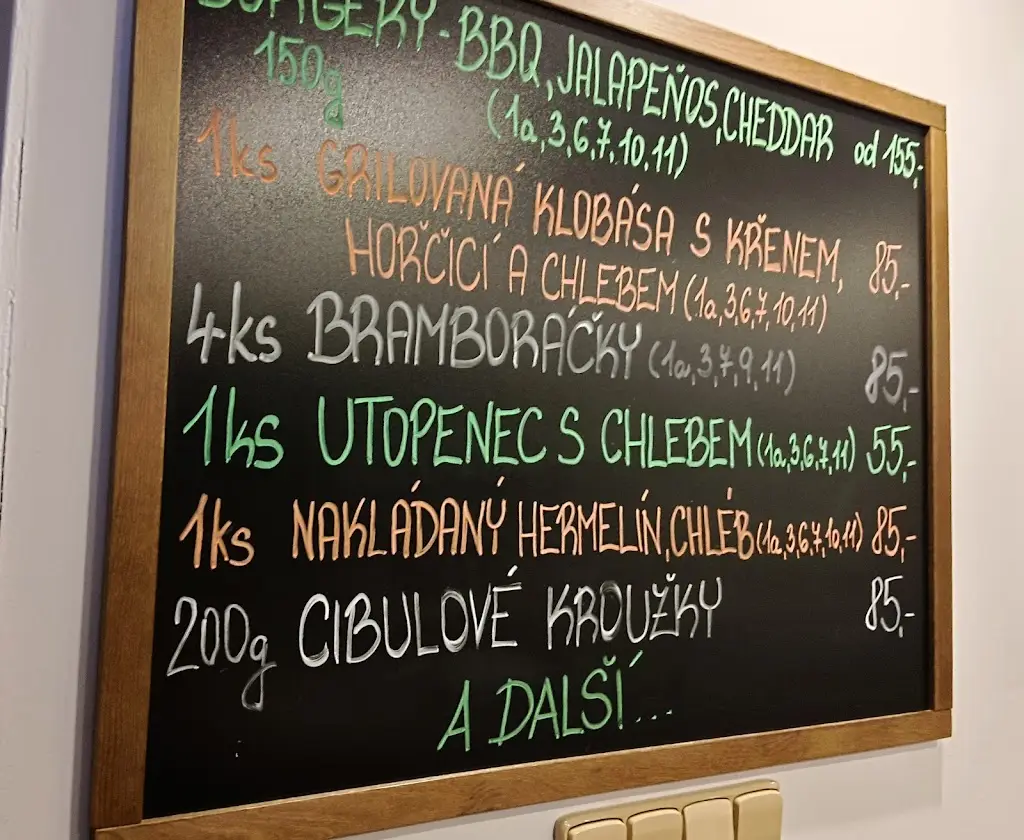 BURGERY - BBQ, JALAPEÑOS, CHEDDAR od 155,-
150g (1a,3,6,7,10,11)
1ks GRILOVANÁ KLOBÁSA S KŘENEM, 85,-
HOŘČICÍ A CHLEBEM (1a,3,6,7,10,11)
4ks BRAMBORÁČKY (1a,3,7,9,11) 85,-
1ks UTOPENEC S CHLEBEM (1a,3,6,7,11) 55,-
1ks NAKLÁDANÝ HERMELÍN, CHLÉB (1a,3,6,7,10,11) 85,-
200g CIBULOVÉ KROUŽKY 85,-
A DALŠÍ...